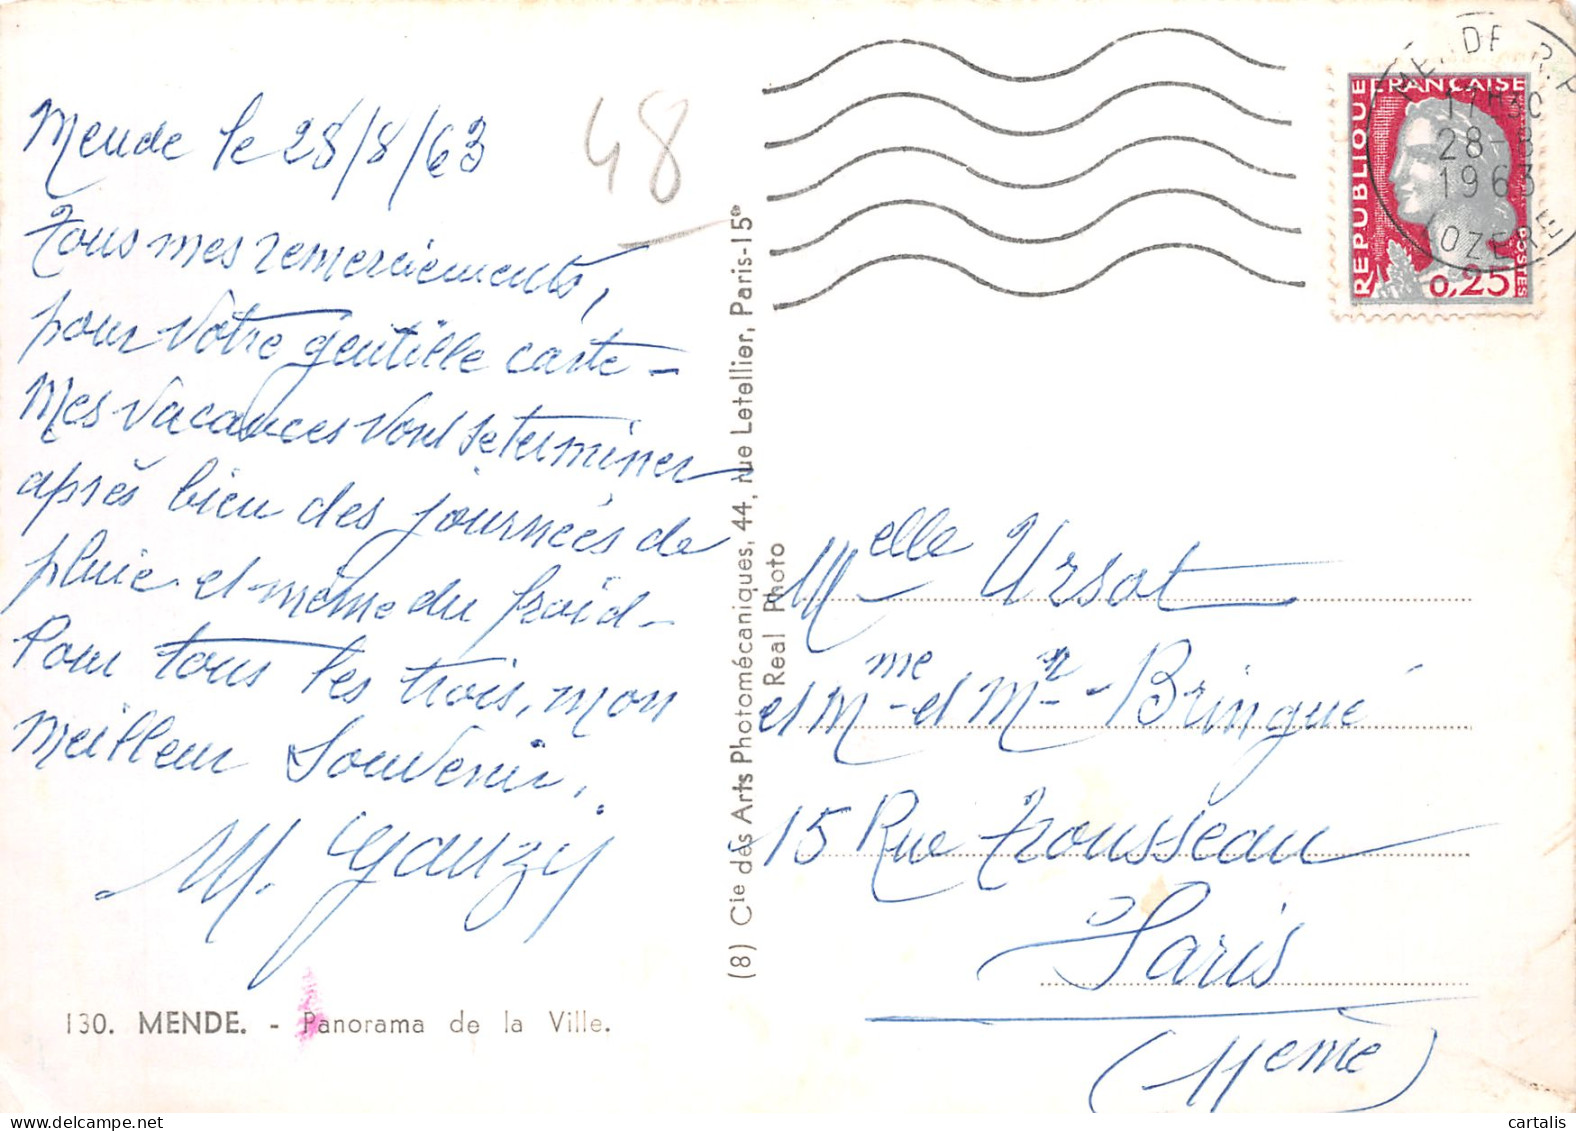 Mende le 28/8/63
48
Tous mes remerciements,
pour votre gentille carte -
Mes vacances vont se terminer
après bien des journées de
pluie et même du froid -
Pour tous les trois, mon
meilleur souvenir.
M. Gauzy
130. MENDE. - Panorama de la Ville.
(8) Cie des Arts Photomécaniques, 44, rue Letellier, Paris-15e
Real Photo
MENDE R.P.
17H30
28-8
1963
LOZERE
REPUBLIQUE FRANÇAISE
0,25
POSTES
Melle Ursat
et Mme et Mr - Bringué
15 Rue Trousseau
Paris
(11eme)
cartalis